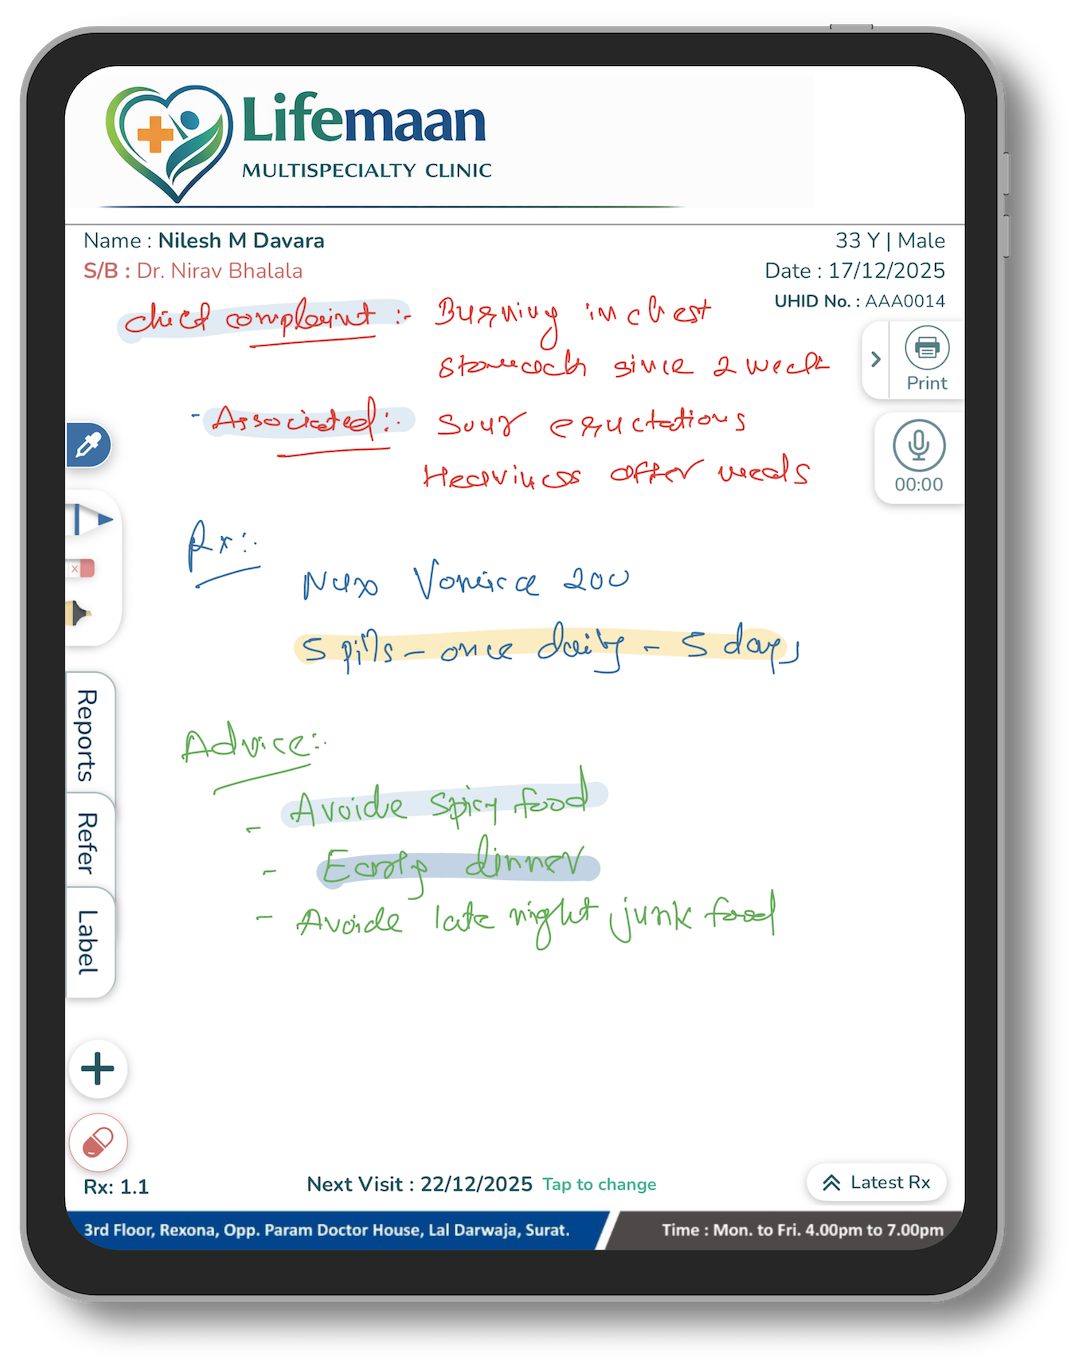 Lifemaan
MULTISPECIALTY CLINIC
Name : Nilesh M Davara
33 Y | Male
S/B : Dr. Nirav Bhalala
Date : 17/12/2025
UHID No. : AAA0014
chief complaint :- Burning in chest
stomach since 2 week
- Associated:- Sour eructations
Heaviness after meals
Print
00:00
Rx:-
Nux Vomica 200
5 pills - once daily - 5 days
Advice:-
- Avoide spicy food
- Early dinner
- Avoide late night junk food
Reports
Refer
Label
Rx: 1.1
Next Visit : 22/12/2025 Tap to change
Latest Rx
3rd Floor, Rexona, Opp. Param Doctor House, Lal Darwaja, Surat.
Time : Mon. to Fri. 4.00pm to 7.00pm